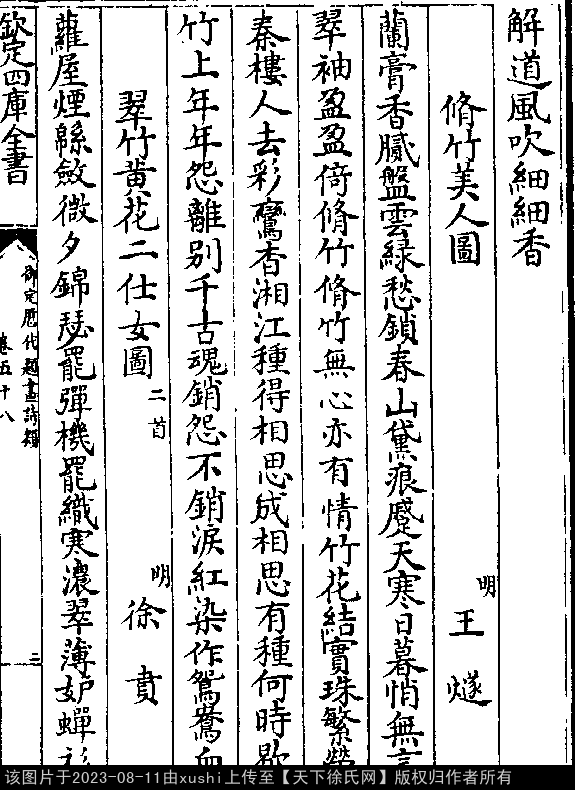 解道風吹細細香
脩竹美人圖
明
王燧
蘭膏香膩盤雲緑愁鎖春山黛痕蹙天寒日暮悄無言
翠袖盈盈倚脩竹脩竹無心亦有情竹花結實珠繁
秦樓人去彩鸞杳湘江種得相思成相思有種何時歇
竹上年年怨離别千古魂銷怨不銷淚紅染作鴛鴦血
翠竹黄花二仕女圖
二首
明
徐賁
蘿屋煙綿斂微夕錦瑟罷彈機罷織寒濃翠薄妒蟬衫
欽定四庫全書
御定歴代題畫詩類
卷五十八
三
该图片于2023-08-11由xushi上传至【天下徐氏网】版权归作者所有